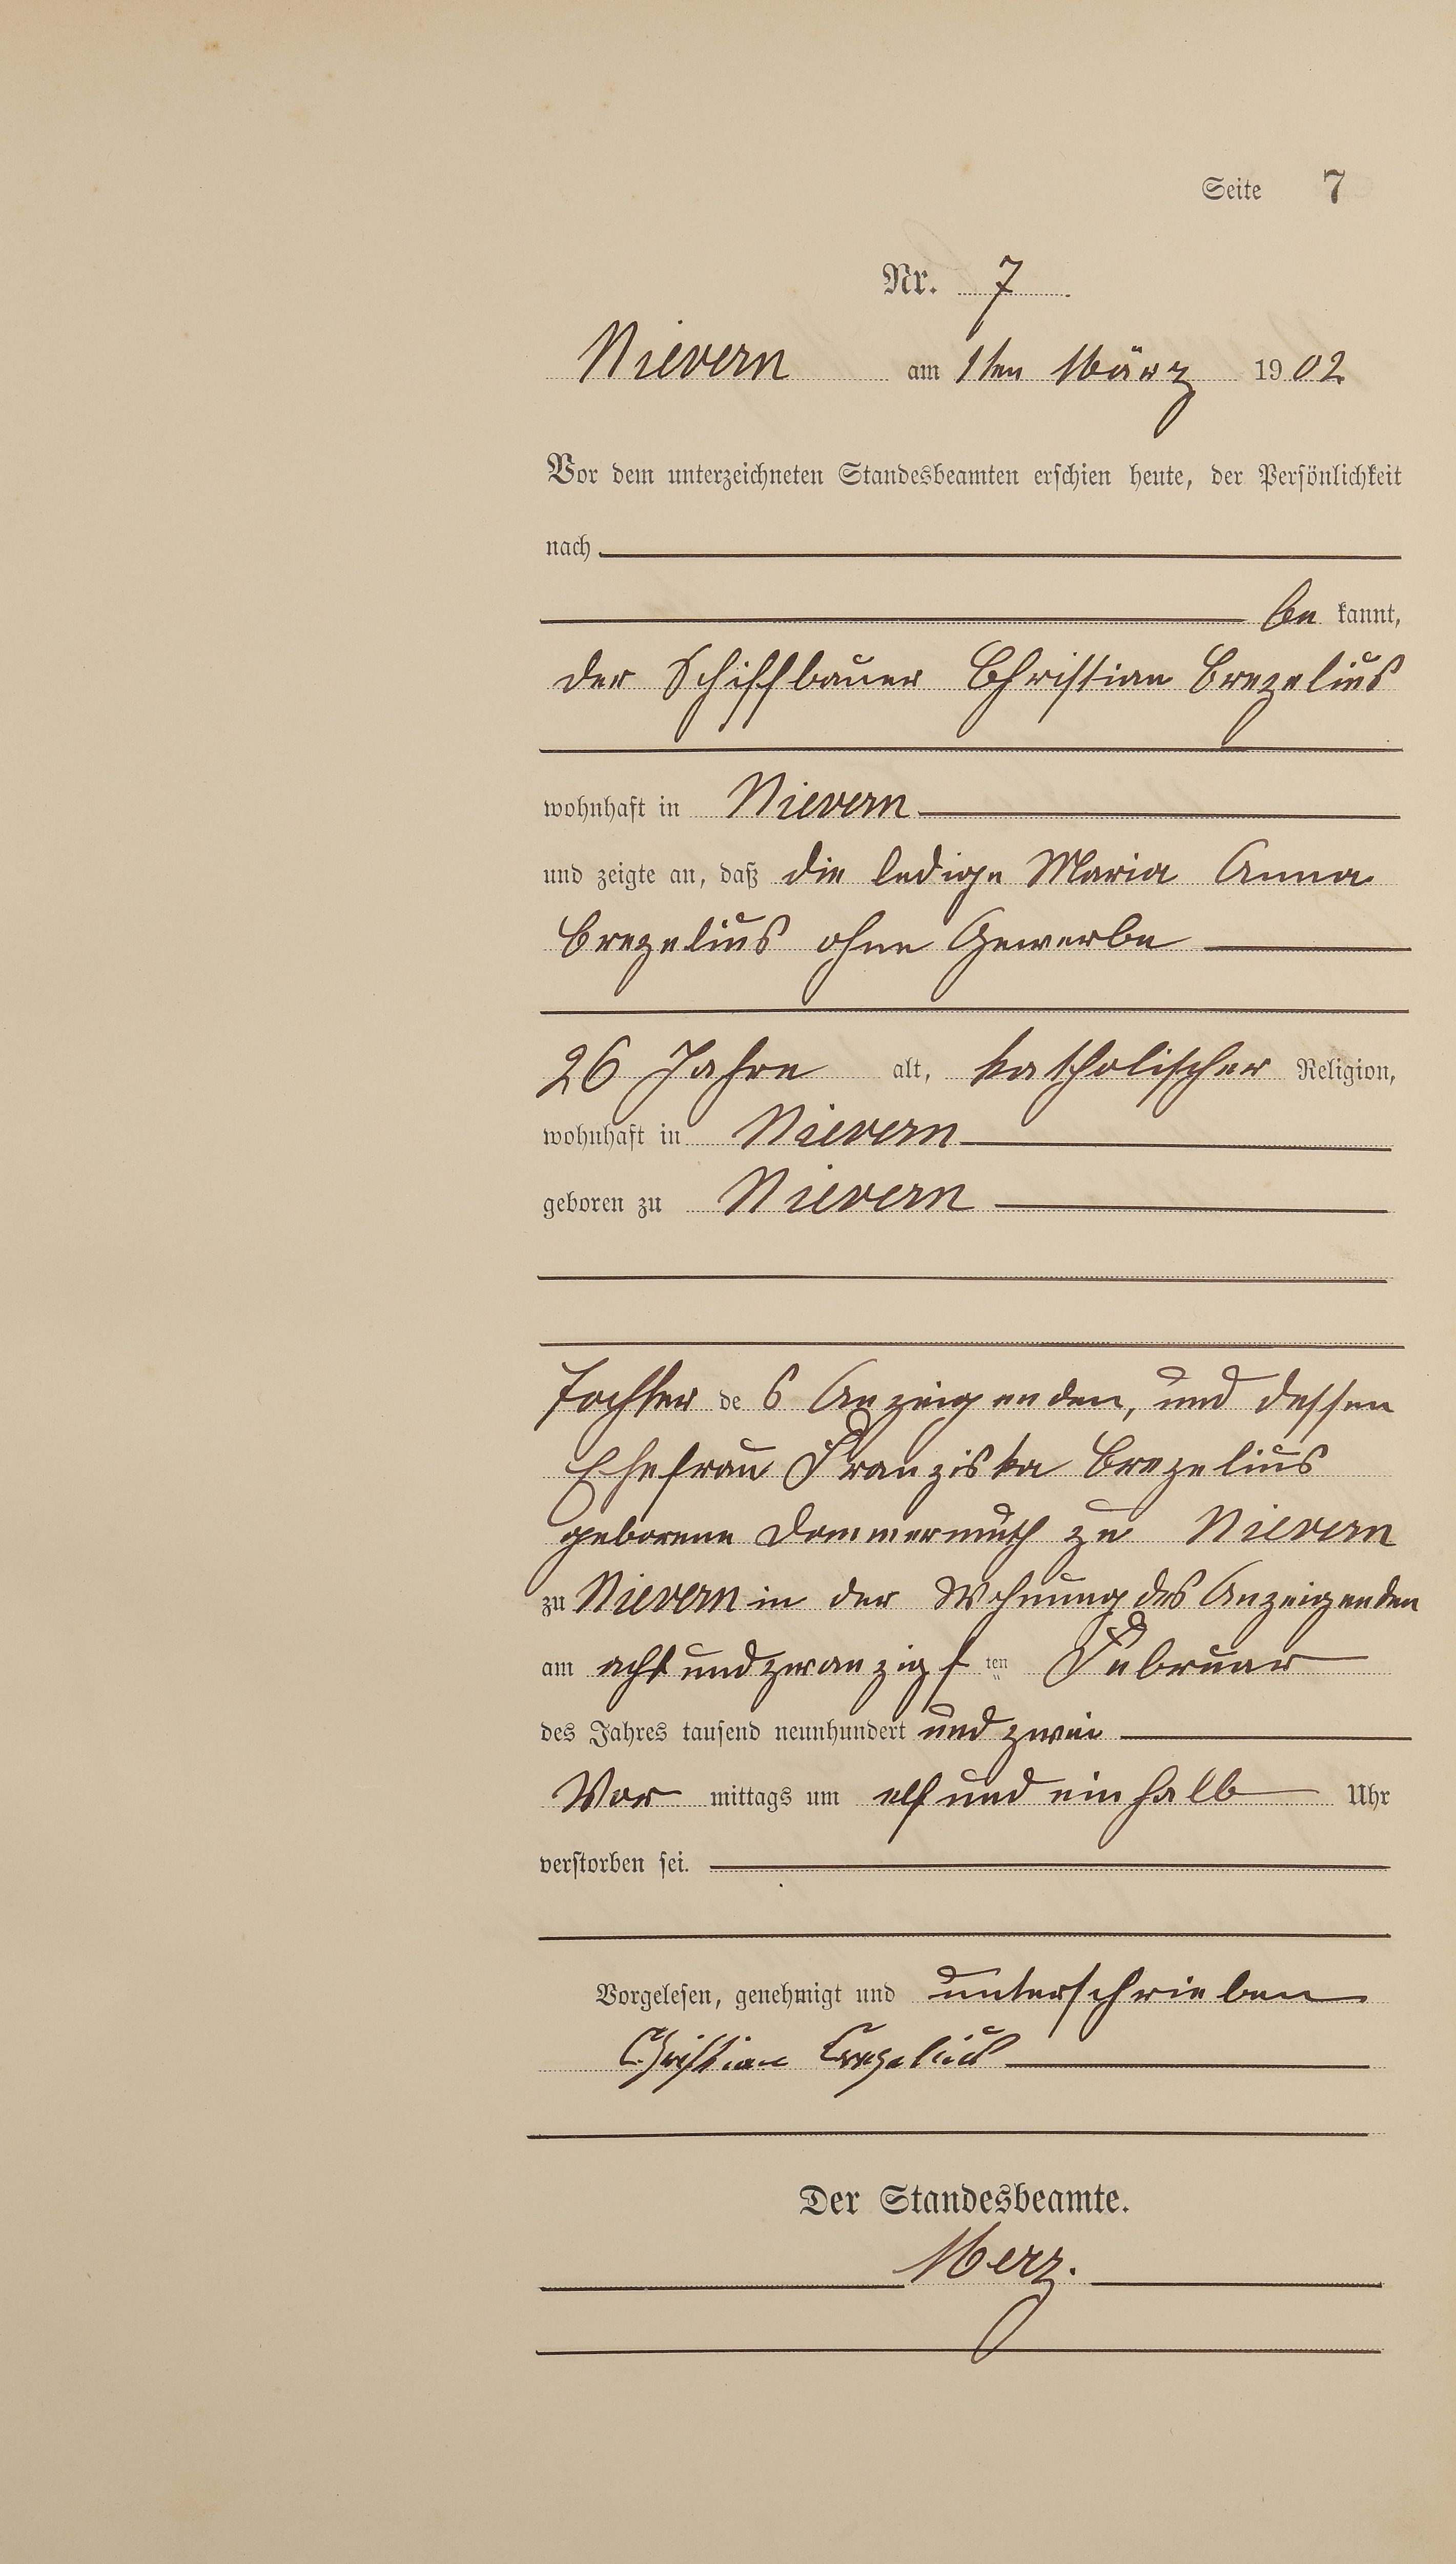 Seite 7
Nr. 7
Nievern am 1ten März 1902
Vor dem unterzeichneten Standesbeamten erschien heute, der Persönlichkeit
nach
be kannt,
der Schiffbauer Christian Crezelius
wohnhaft in Nievern
und zeigte an, daß die ledige Maria Anna
Crezelius ohne Gewerbe
26 Jahre alt, katholischer Religion,
wohnhaft in Nievern
geboren zu Nievern
Tochter des Anzeigenden, und dessen
Ehefrau Franziska Crezelius
geborene Dommermuth zu Nievern
zu Nievern in der Wohnung des Anzeigenden
am acht und zwanzigsten Februar
des Jahres tausend neunhundert und zwei
Vor mittags um elf und ein halb Uhr
verstorben sei.
Vorgelesen, genehmigt und unterschrieben
Christian Crezelius
Der Standesbeamte.
Merz.